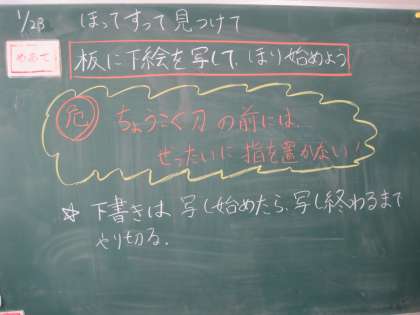 1/28 ほってすって見つけて
めあて 板に下絵を写して、ほり始めよう
危 ちょうこく刀の前には、
ぜったいに指を置かない!
☆ 下書きは写し始めたら、写し終わるまで
やり切る。